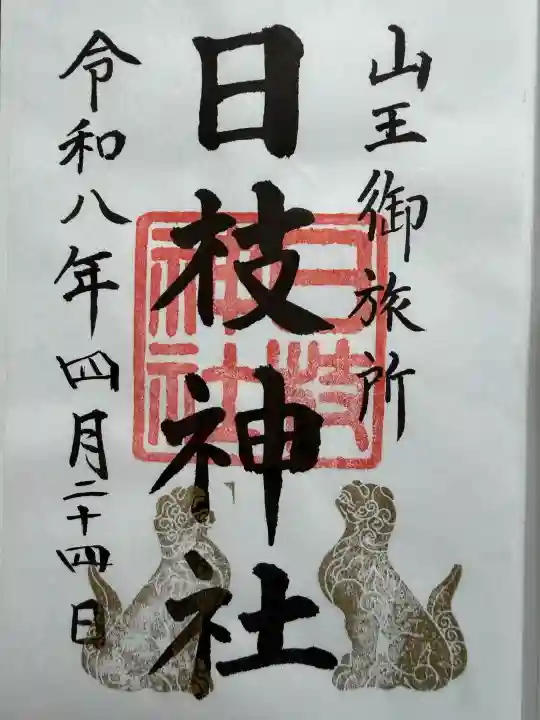 山王御旅所
日枝神社
日枝神社
令和八年四月二十四日